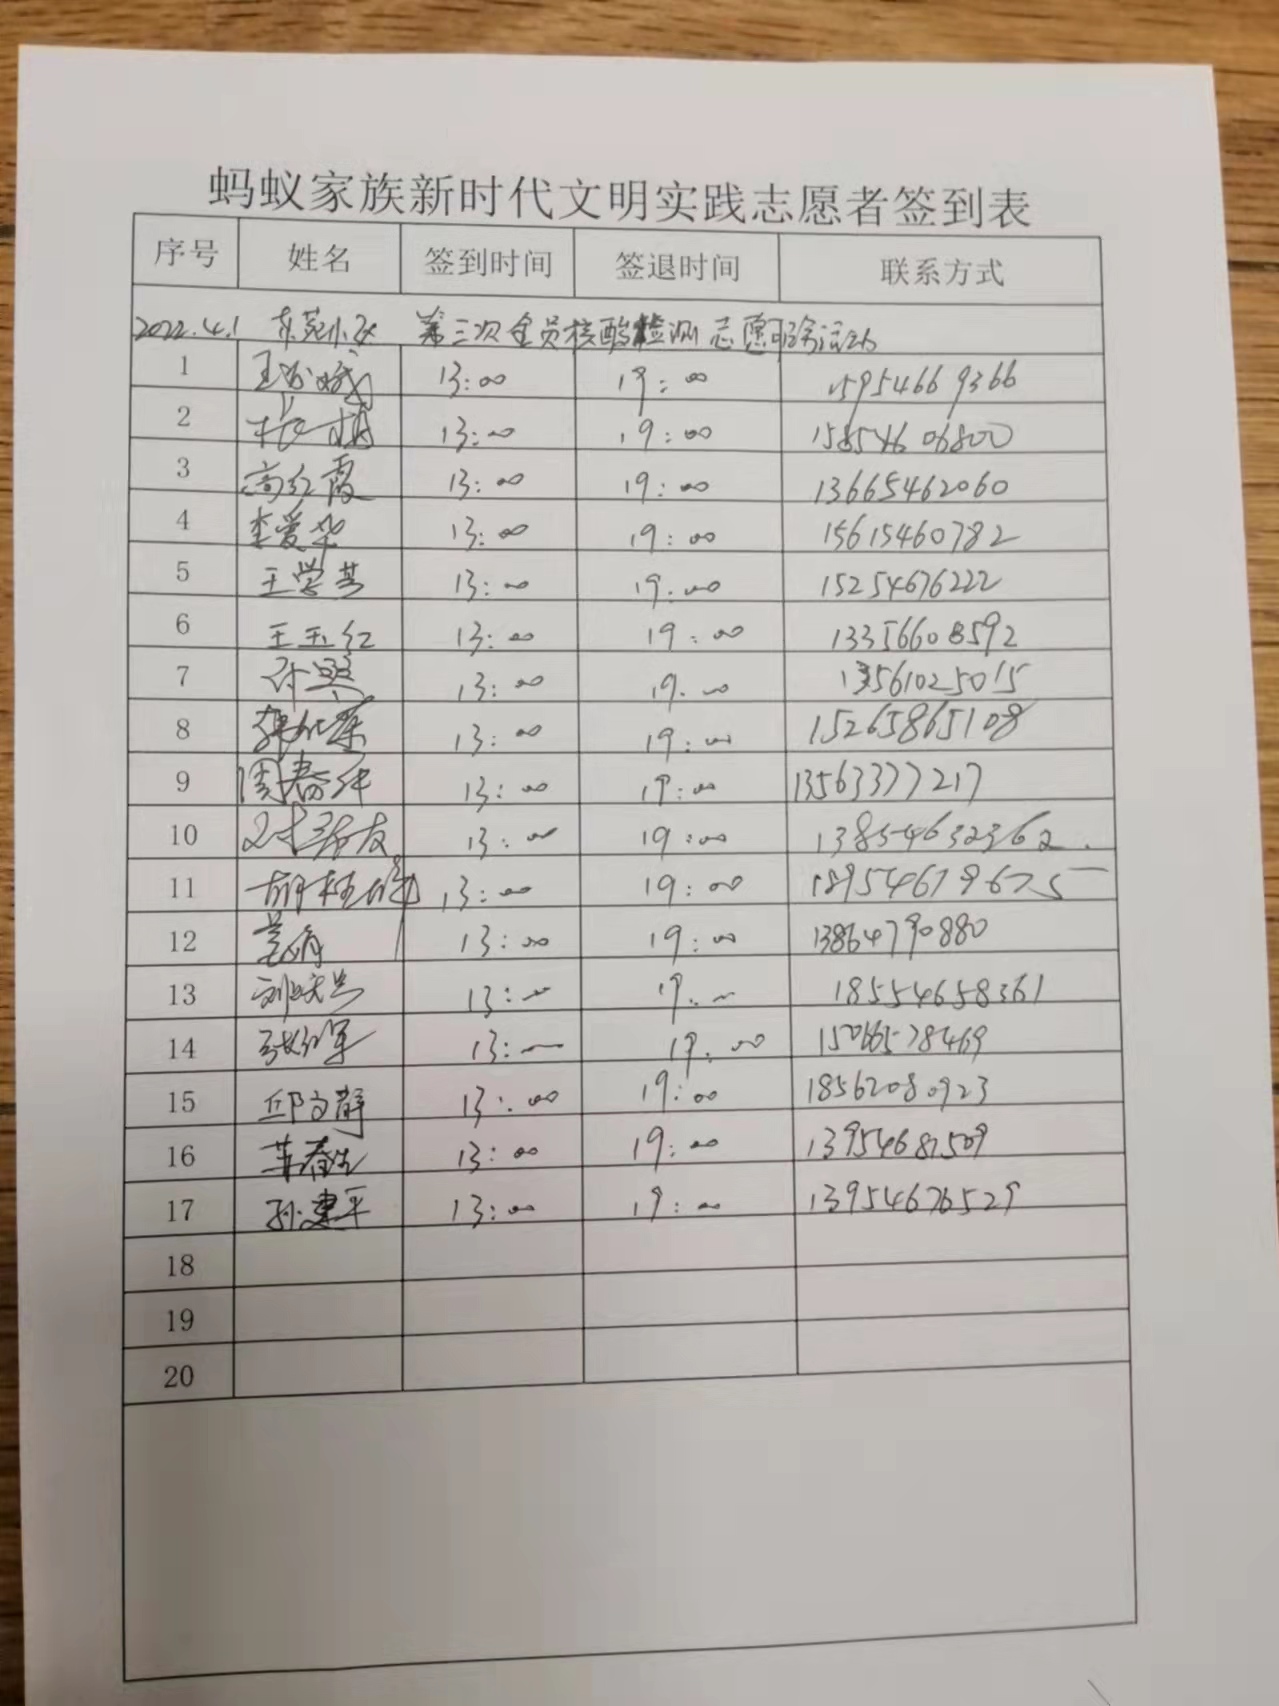 蚂蚁家族新时代文明实践志愿者签到表
序号 姓名 签到时间 签退时间 联系方式
2022.4.1 第三次全员核酸检测志愿服务活动
1 13:00 19:00 15954669366
2 13:00 19:00 15854606800
3 高红霞 13:00 19:00 13665462060
4 李爱华 13:00 19:00 15615460782
5 王学芸 13:00 19:00 15254676222
6 王玉红 13:00 19:00 13356608592
7 13:00 19:00 13561025015
8 13:00 19:00 15265865108
9 13:00 19:00 13563377217
10 13:00 19:00 13854632362
11 13:00 19:00 18954679675
12 13:00 19:00 13864790880
13 13:00 19:00 18554658361
14 张红军 13:00 19:00 15066578469
15 邱文静 13:00 19:00 18562080923
16 13:00 19:00 13954681509
17 孙建平 13:00 19:00 13954676529
18
19
20